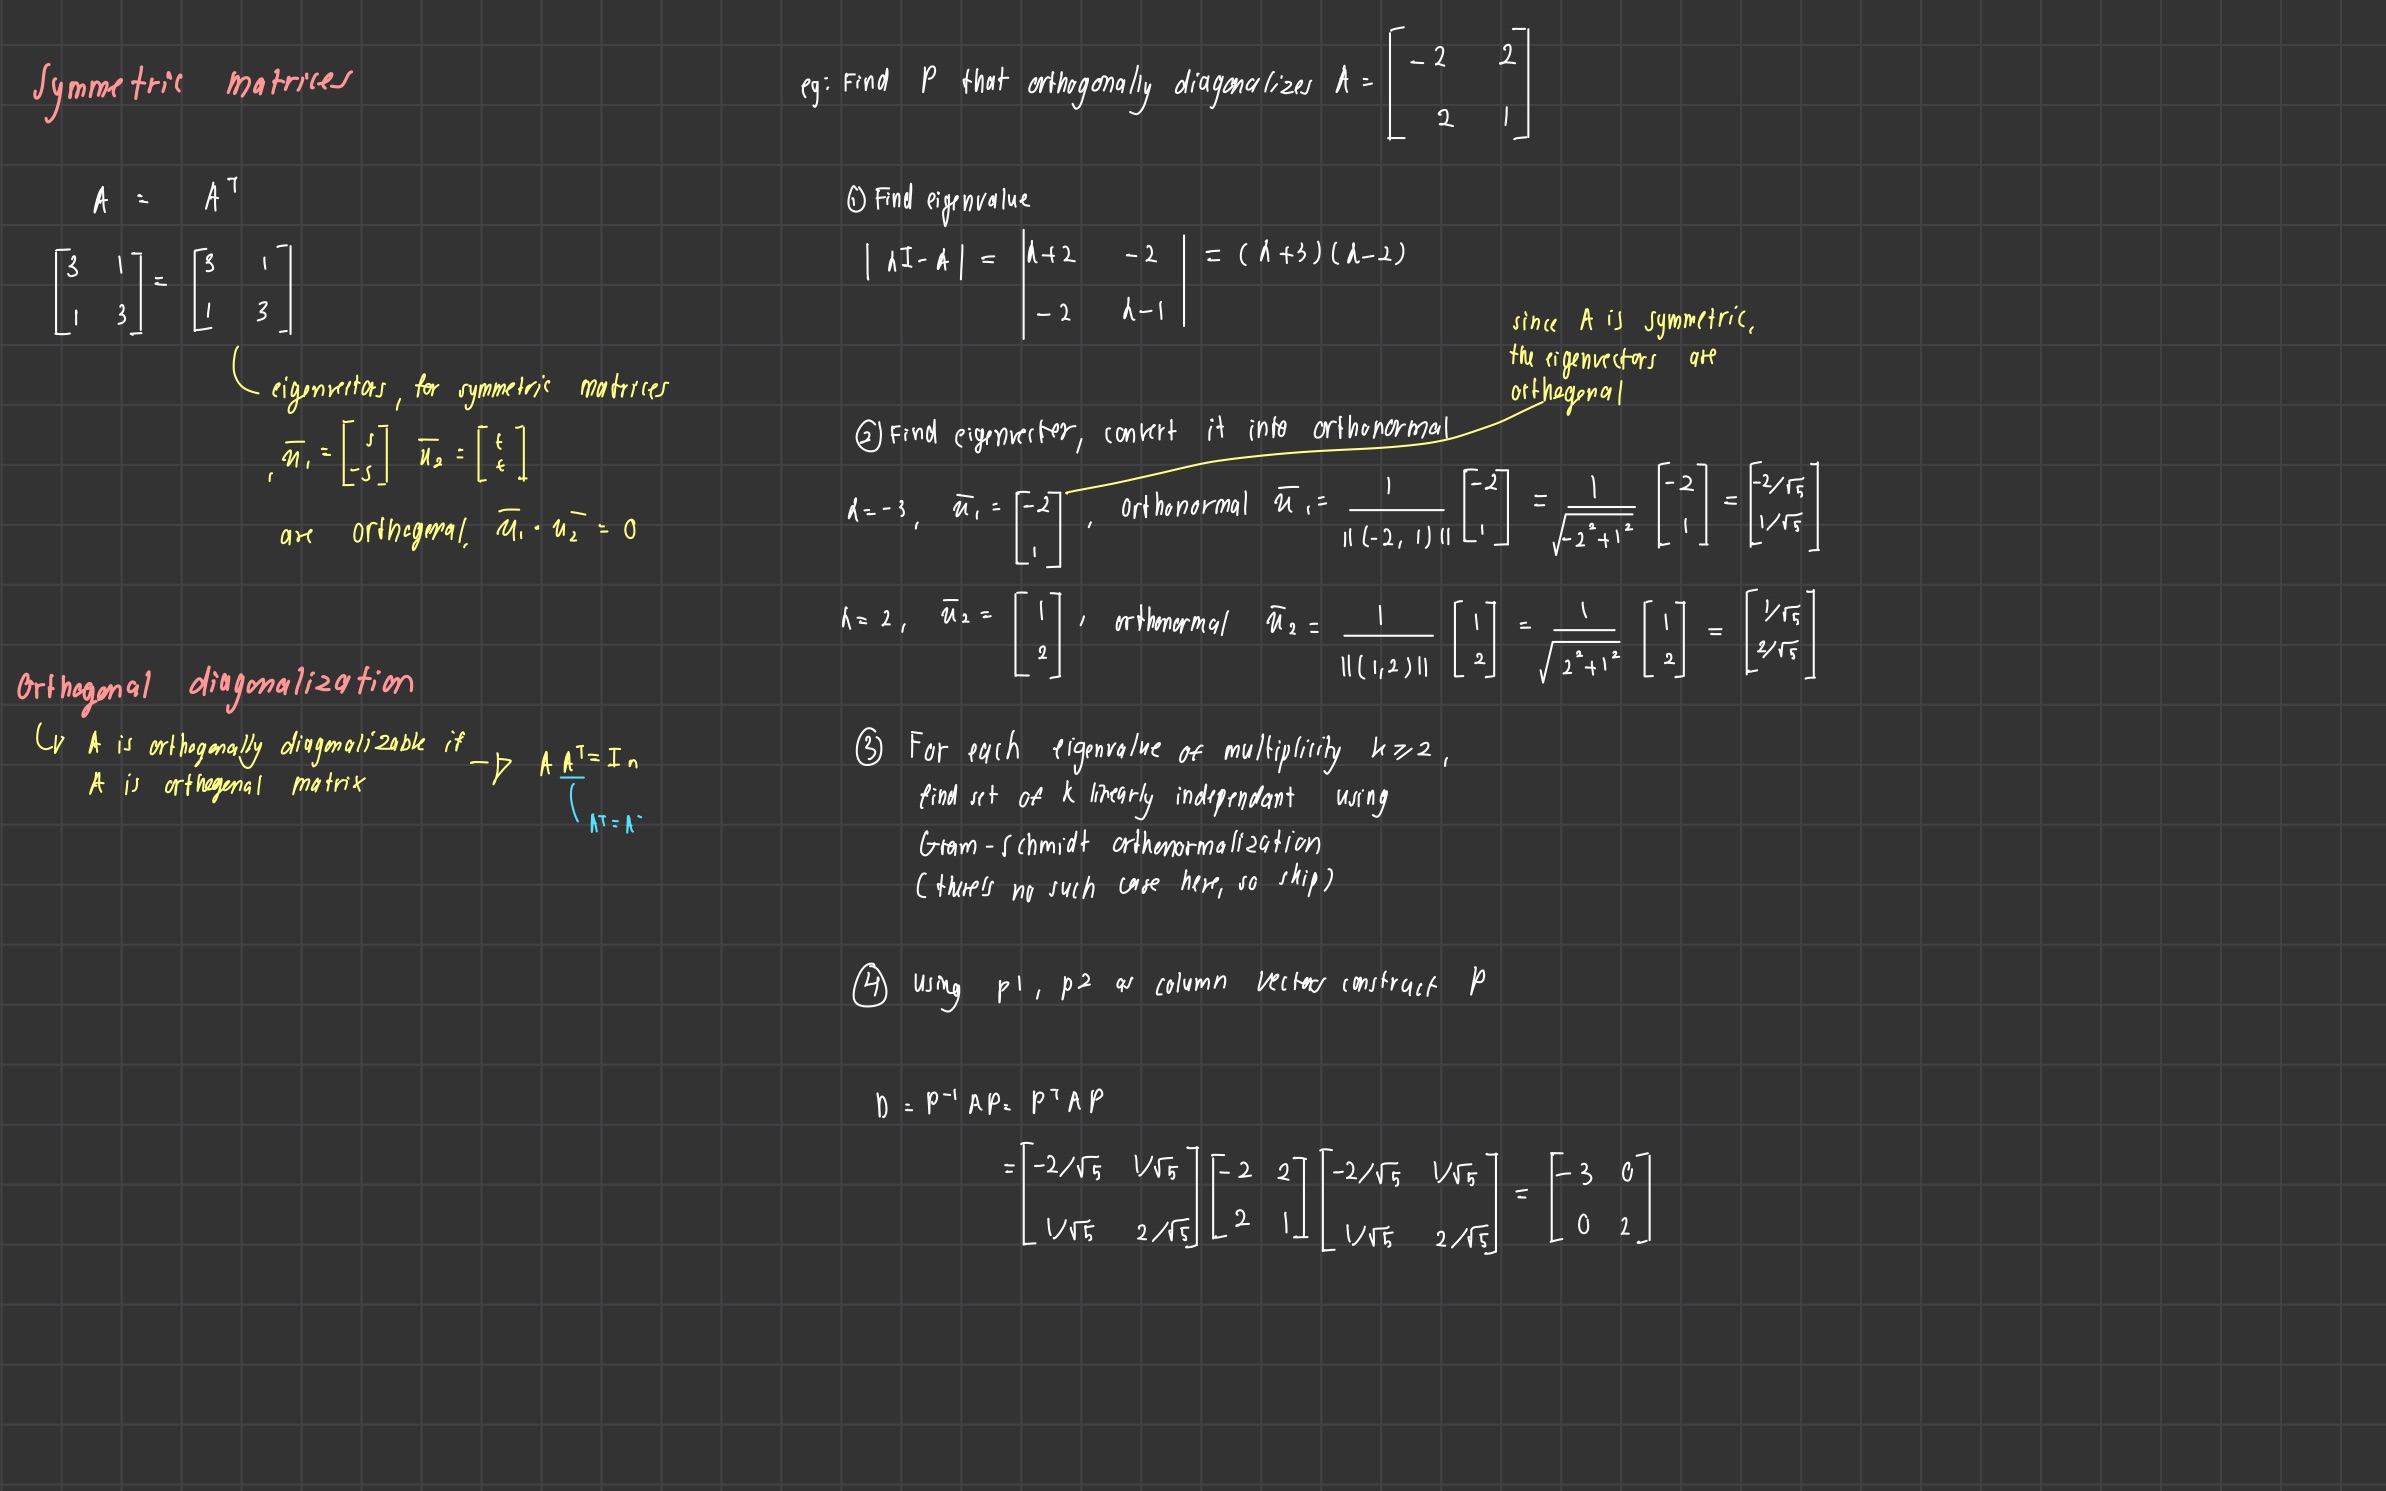 Symmetric matrices
A = Aᵀ
[3 1; 1 3] = [3 1; 1 3]
eigenvectors, for symmetric matrices
, u̅₁ = [s; -s] u̅₂ = [t; t]
are orthogonal, u̅₁ · u̅₂ = 0
Orthogonal diagonalization
↳ A is orthogonally diagonalizable if
A is orthogonal matrix
→ A Aᵀ = In
Aᵀ = A⁻
eg: Find P that orthogonally diagonalizes A = [-2 2; 2 1]
① Find eigenvalue
|λI - A| = |λ+2 -2; -2 λ-1| = (λ+3)(λ-2)
since A is symmetric,
the eigenvectors are
orthogonal
② Find eigenvector, convert it into orthonormal
λ = -3, u̅₁ = [-2; 1], orthonormal u̅₁ = 1/||(-2, 1)|| [-2; 1] = 1/√(-2²+1²) [-2; 1] = [-2/√5; 1/√5]
λ = 2, u̅₂ = [1; 2], orthonormal u̅₂ = 1/||(1,2)|| [1; 2] = 1/√(2²+1²) [1; 2] = [1/√5; 2/√5]
③ For each eigenvalue of multiplicity k ≥ 2,
find set of k linearly independant using
Gram-Schmidt orthonormalization
(there's no such case here, so skip)
④ Using p1, p2 as column vectors construct P
D = P⁻¹AP = PᵀAP
= [-2/√5 1/√5; 1/√5 2/√5] [-2 2; 2 1] [-2/√5 1/√5; 1/√5 2/√5] = [-3 0; 0 2]